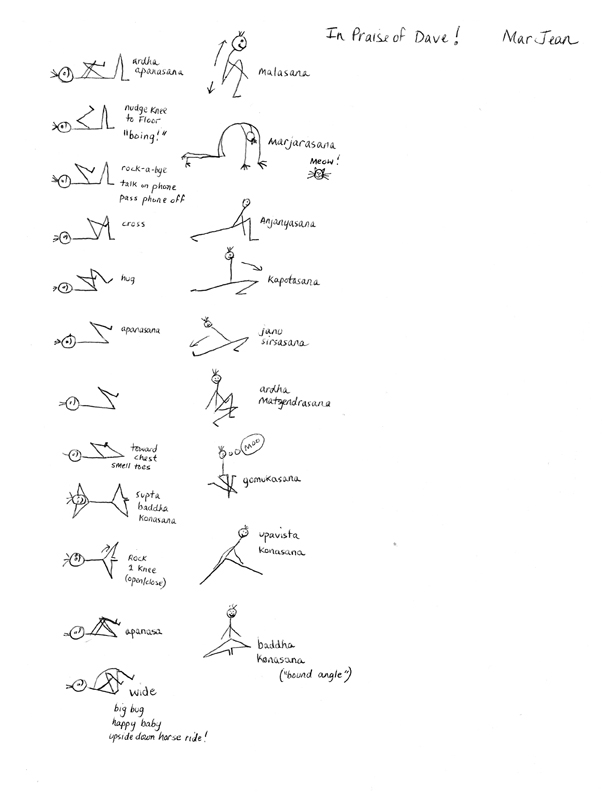 In Praise of Dave!
MarJean
ardha
apanasana
nudge knee
to floor
"boing!"
rock-a-bye
talk on phone
pass phone off
cross
hug
apanasana
toward
chest
smell toes
supta
baddha
konasana
Rock
1 knee
(open/close)
apanasa
wide
big bug
happy baby
upside down horse ride!
malasana
Marjarasana
meow!
Anjanyasana
Kapotasana
janu
sirsasana
ardha
Matzendrasana
moo
gomukasana
upavista
konasana
baddha
konasana
("bound angle")